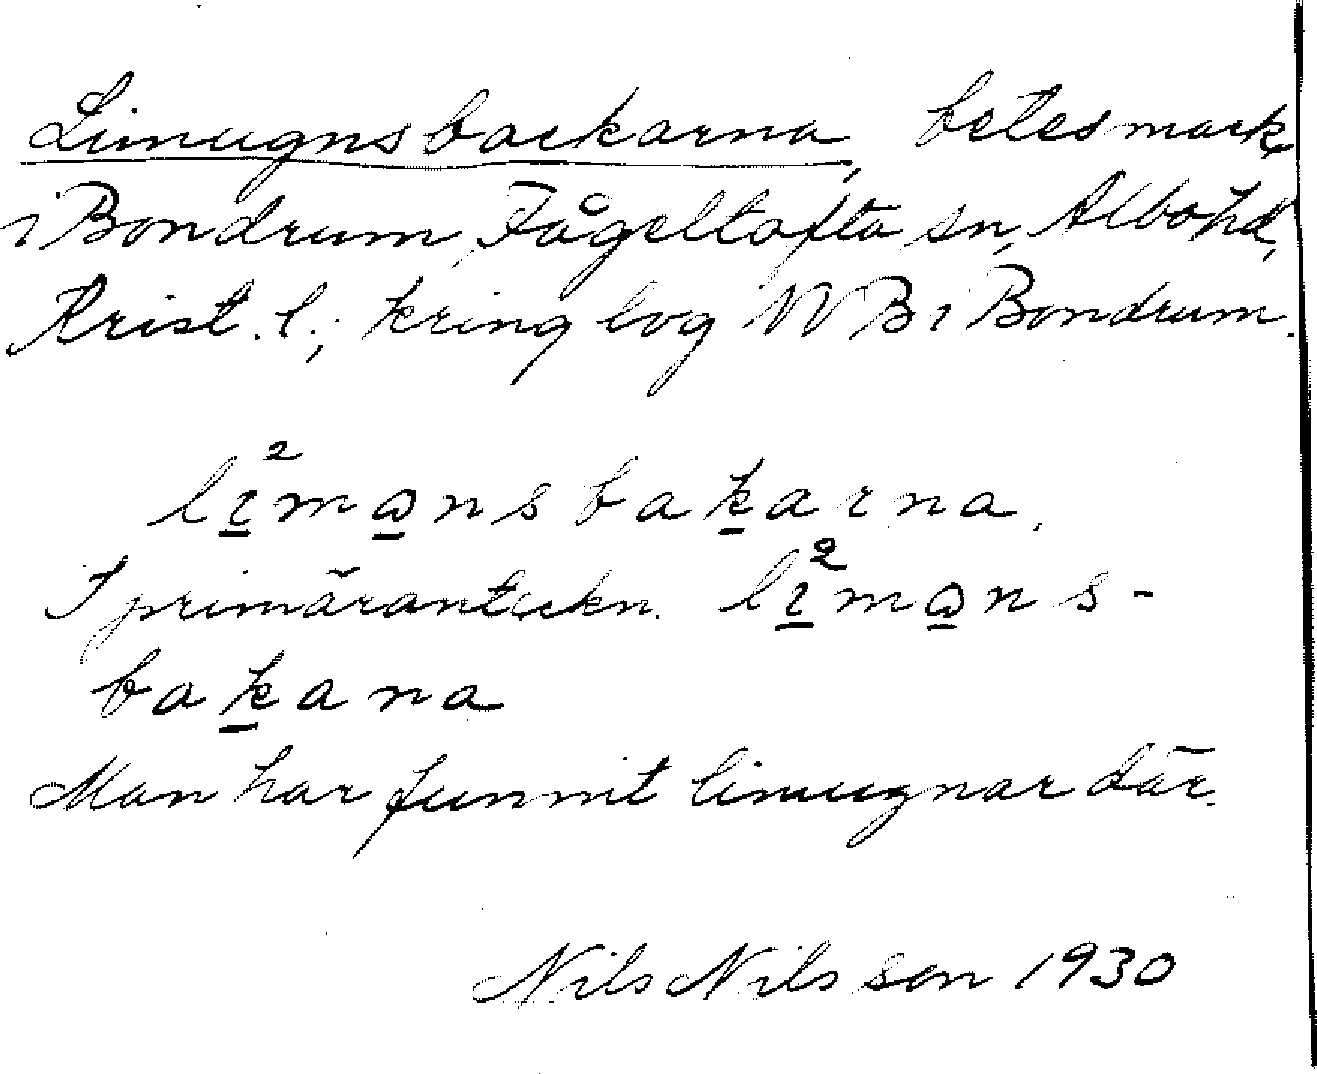 Limugnsbackarna, betesmark,
i Bondrum, Fågeltofta sn, Albo hd,
Krist. l.; kring log NV B i Bondrum.
lı̱²ma̱nsbaḵarna.
I primäranteckn. lı̱²ma̱ns-
baḵana
Man har funnit limugnar där.
Nils Nilsson 1930